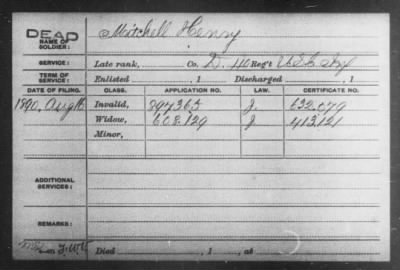 DEAD
NAME OF SOLDIER: Mitchell Henry
SERVICE: Late rank, Co. D. 110 Reg't U.S.C. Inf
TERM OF SERVICE: Enlisted , 1 Discharged , 1
DATE OF FILING. CLASS. APPLICATION NO. LAW. CERTIFICATE NO.
1890, Aug 16 Invalid, 894365 J. 632.079
Widow, 608.129 J 413,121
Minor,
ADDITIONAL SERVICES:
REMARKS:
Died , 1 , at